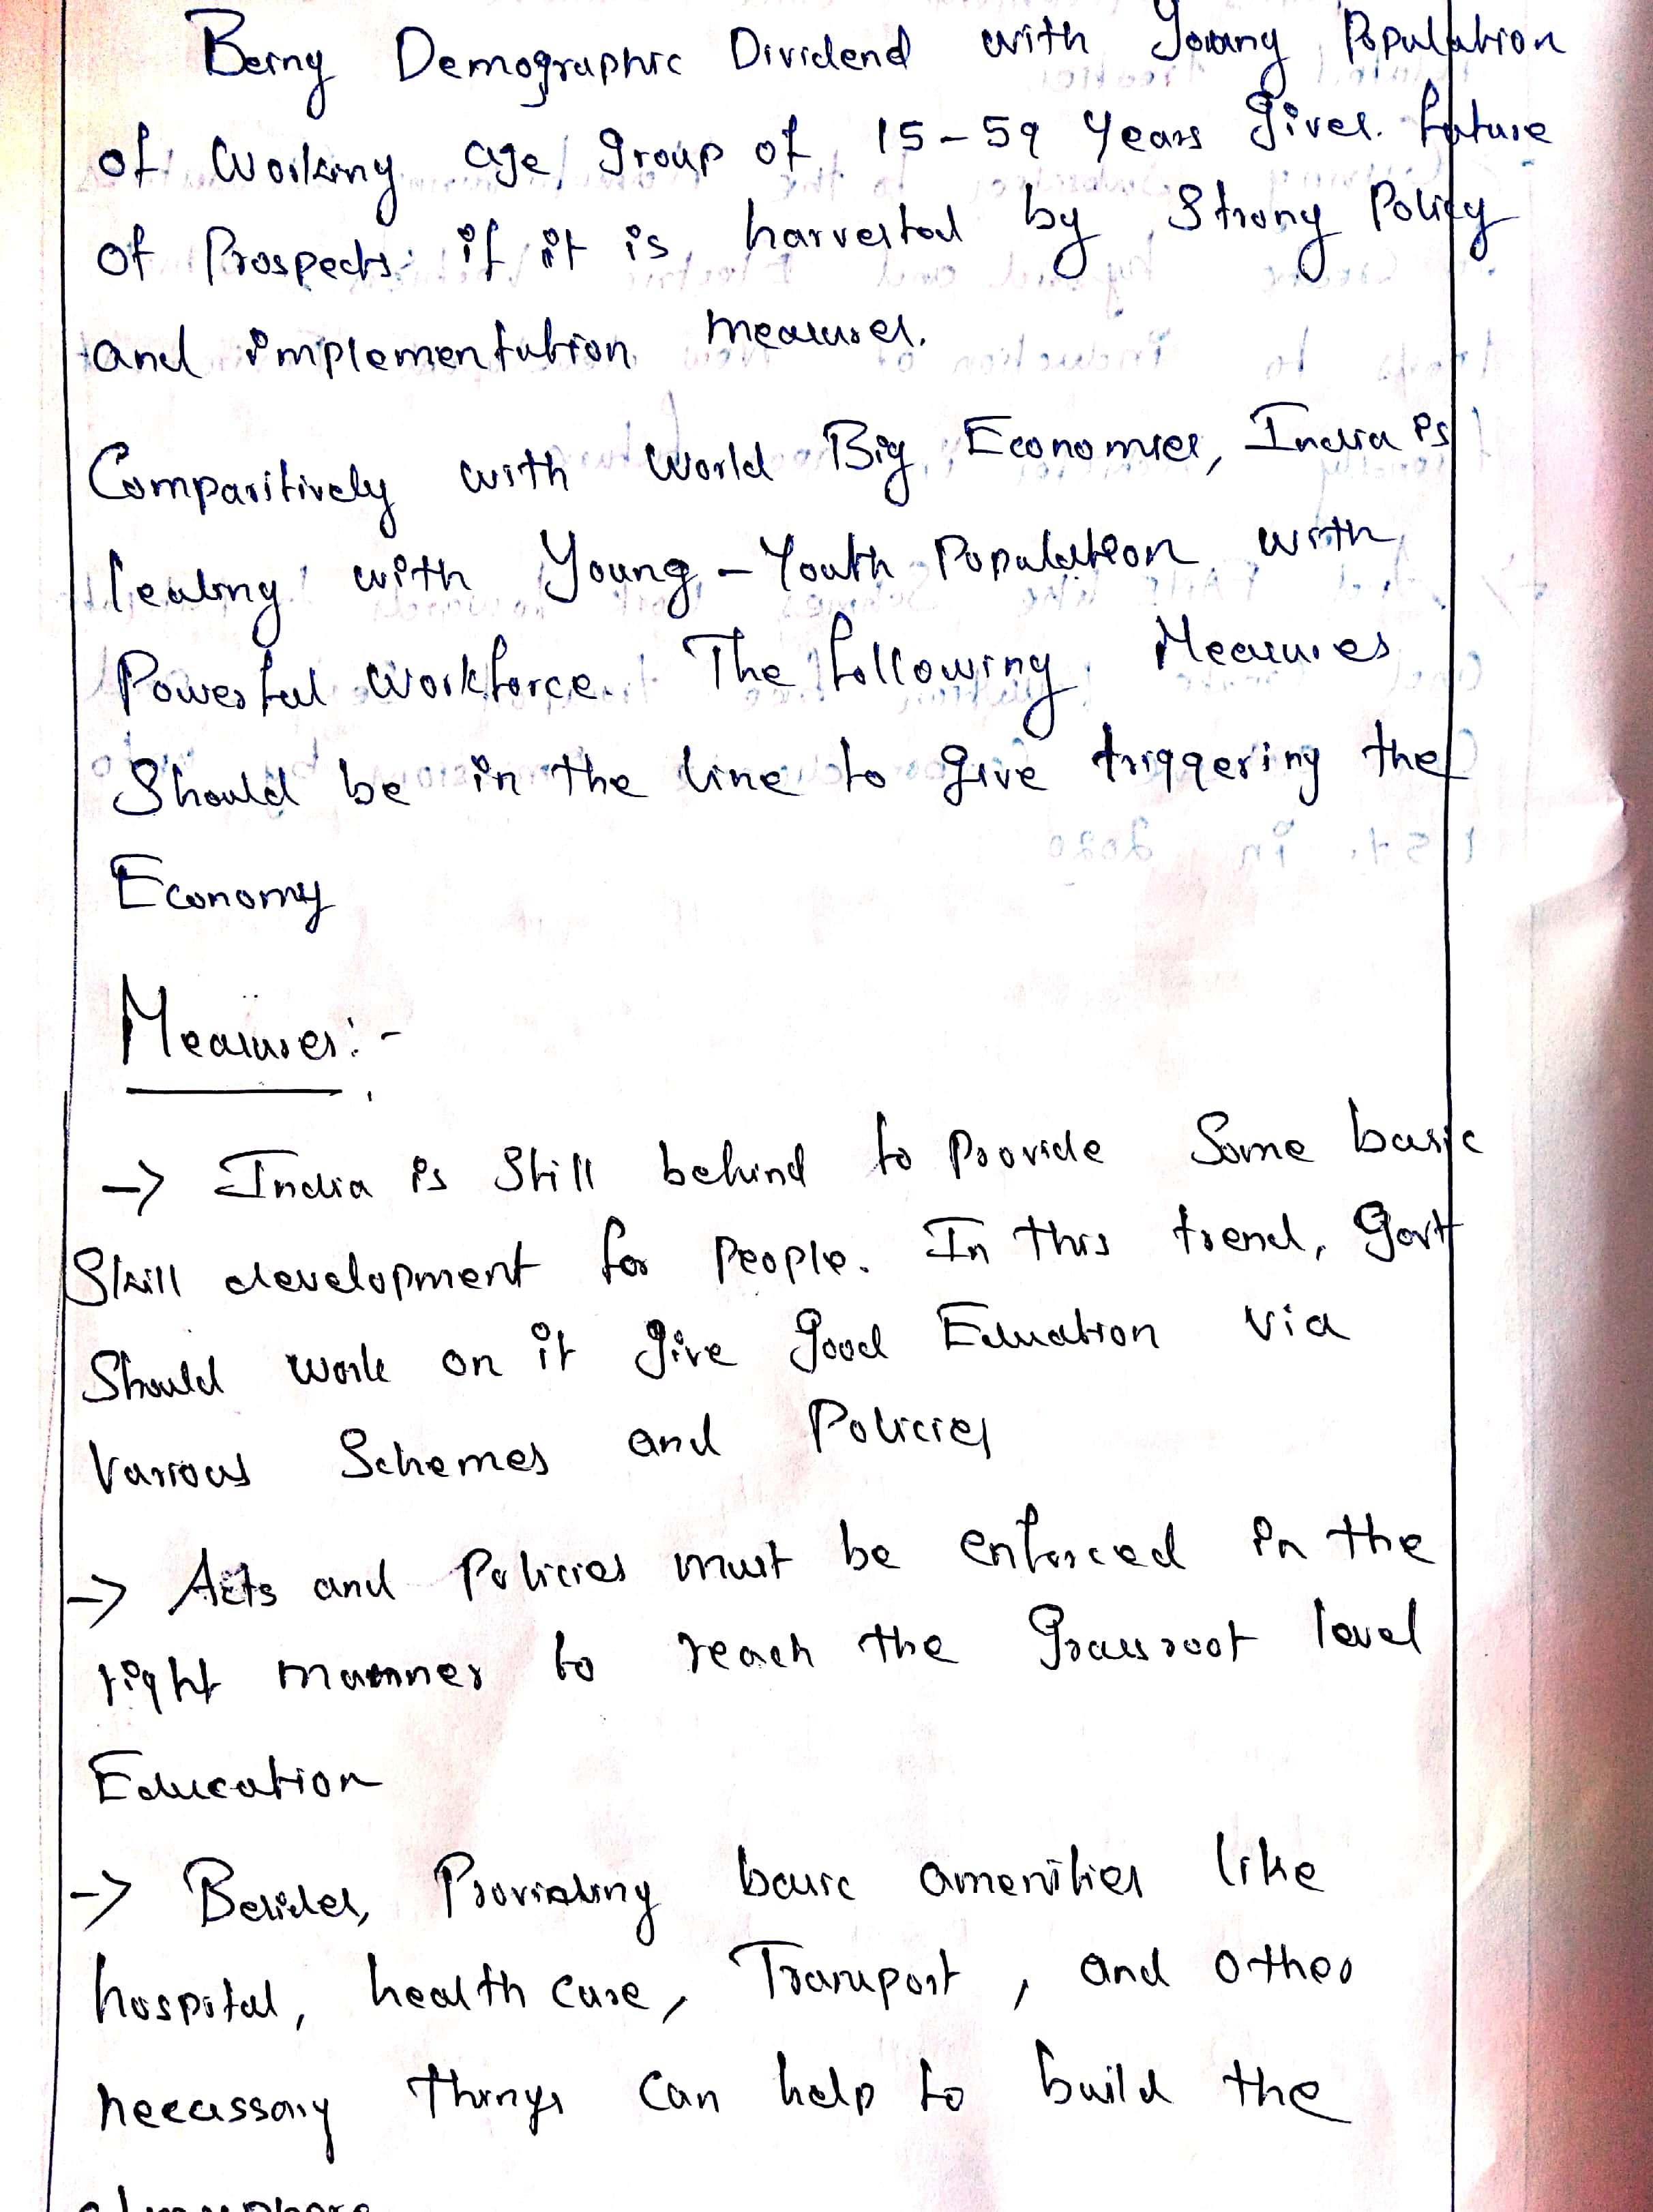 Being Demographic Dividend with Young Population
of Working age group of 15-59 years gives future
of Prospects if it is harvested by Strong Policy
and implementation measures.
Comparitively with World Big Economies, India is
leading with Young - Youth Population with
Powerful Workforce. The following Measures
Should be in the line to give triggering the
Economy
Measures:-
-> India is Still behind to Provide Some basic
Skill development for People. In this trend, govt
Should work on it give good Education via
Various Schemes and Policies
-> Acts and Policies must be enforced in the
right manner to reach the Grassroot level
Education
-> Besides, Providing basic amenities like
hospital, health care, Transport, and other
necessary things can help to build the
atmosphere